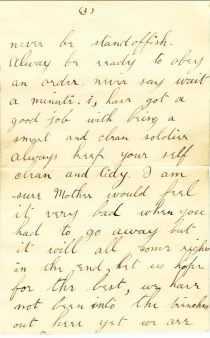 (3)
never be standoffish.
Always be ready to obey
an order never say wait
a minute. i, have got a
good job with being a
smart and clean soldier
always keep your self
clean and tidy. I am
sure Mother would feel
it very bad when you
had to go away but
it will all come right
in the end, let us hope
for the best, we have
not been into the trenches
out here yet we are